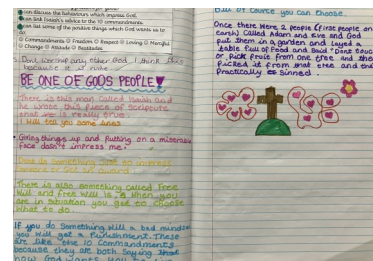 can discuss the behaviours which impress God.
can link Isaiah's advice to the 10 commandments.
can list some of the positive things which God wants us to
do.
Commandments Freedom Respect Loving Merciful
Change Attitude Beatitudes
Don't worrup any other God. I think this
because it is
BE ONE OF GODS PEOPLE!
There is this man called Isaiah and
he wrote this piece of scripture
that is really true.
I will tell you some lines
Giving things up and putting on a miserable
face doesn't impress me.
Dont do something just to impress
someone or Get an award.
There is also something called Free
Will and free Will is, is when you
are in Situation you get to choose
What to do.
If you do Something Will a bad mindset
you Will get a Punishment. These
are like the 10 Commandments
because they are both saying
how God wants you
but of course you can choose.
Once there were 2 people (first people on
earth) called Adam and Eve and God
put them in a garden and layed a
table full of food and said "Dont
or Pick fruit from one tree and the
picked it from that tree and the
Practically Sinned.